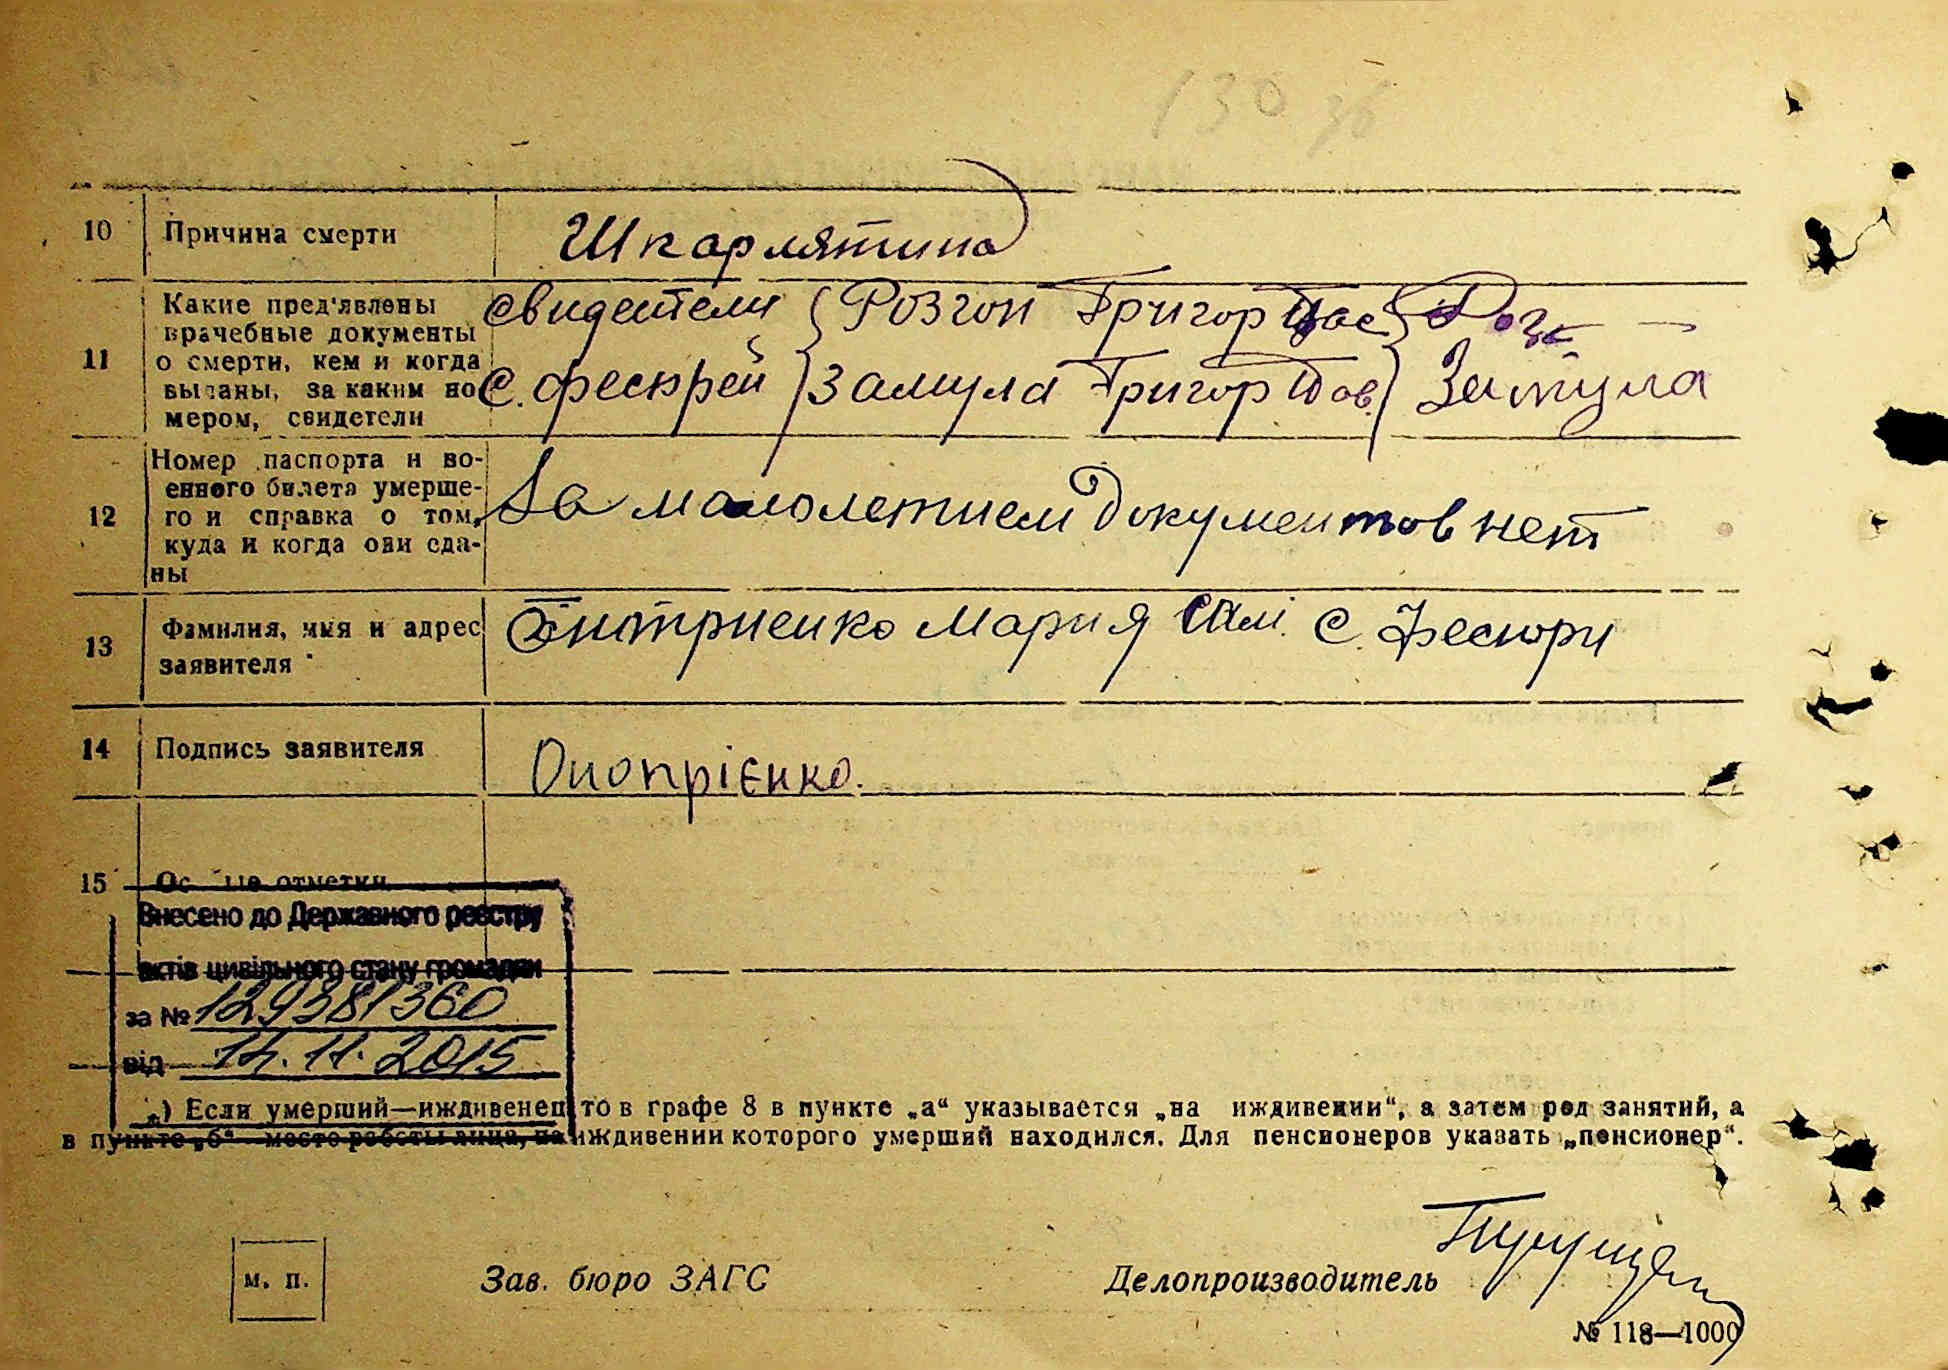 130 зв
10 Причина смерти Шкарлятина
11 Какие пред'явлены врачебные документы о смерти, кем и когда выданы, за каким номером, свидетели
свидетели { Розгон Григор
с. Фесюрей } Замула Григор Замула
12 Номер паспорта и военного билета умершего и справка о том, куда и когда они сданы
За малолетнием документов нет
13 Фамилия, имя и адрес заявителя
Мария с. Фесюри
14 Подпись заявителя Онопрієнко.
15 отметки
Внесено до Державного реєстру
актів цивільного стану громадян
за № 129381360
від 14.11.2015
Если умерший—иждивенец то в графе 8 в пункте „а“ указывается „на иждивении“, а затем род занятий, а
в пункте „б“ место работы лица, на иждивении которого умерший находился. Для пенсионеров указать „пенсионер“.
м. п. Зав. бюро ЗАГС Делопроизводитель
№ 118—1000